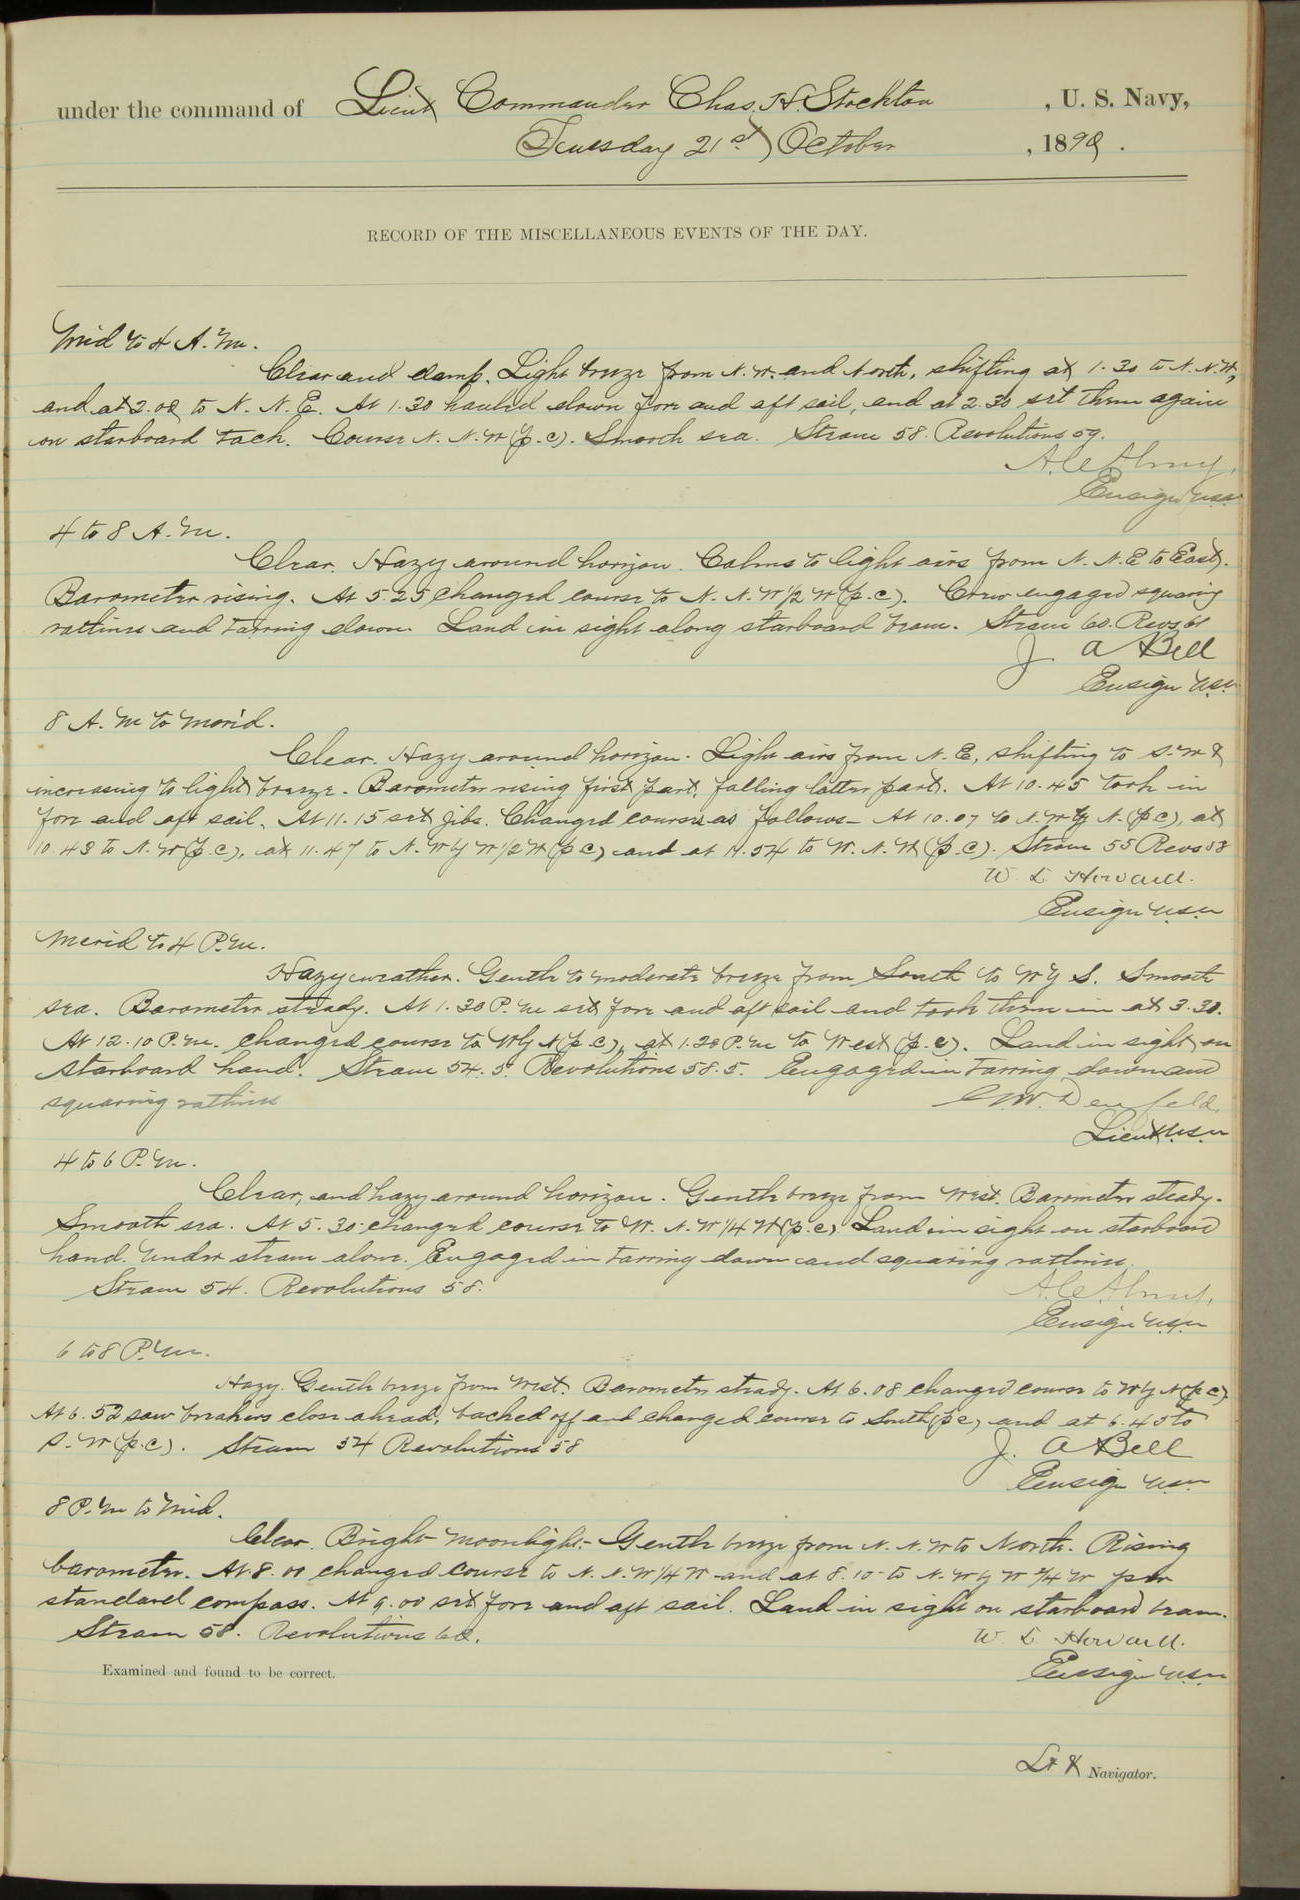 under the command of Lieut Commander Chas. H. Stockton , U. S. Navy,
Tuesday 21st October , 1890 .
RECORD OF THE MISCELLANEOUS EVENTS OF THE DAY.
Mid to 4 A.M.
Clear and damp. Light breeze from N.W. and North, shifting at 1.30 to N.N.W,
and at 2.00 to N.N.E. At 1.30 hauled down fore and aft sail, and at 2.30 set them again
on starboard tack. Course N.N.W (p.c). Smooth sea. Steam 58. Revolutions 59.
A.C. Almy,
Ensign USN
4 to 8 A.M.
Clear. Hazy around horizon. Calms to light airs from N.N.E to East.
Barometer rising. At 5.25 changed course to N.N.W 1/2 W (p.c). Crew engaged squaring
ratlines and tarring down. Land in sight along starboard beam. Steam 60. Revs 61
J. A Bell
Ensign USN
8 A.M to Merid.
Clear. Hazy around horizon. Light airs from N.E, shifting to S.W &
increasing to light breeze. Barometer rising first part, falling latter part. At 10.45 took in
fore and aft sail. At 11.15 set jibs. Changed course as follows– At 10.07 to N.W by N. (p c), at
10.43 to N.W (p.c), at 11.47 to N.W by W 1/2 W (p c) and at 11.54 to W.N.W (p.c). Steam 55 Revs 58
W L Howard.
Ensign USN
Merid to 4 P.M.
Hazy weather. Gentle to moderate breeze from South to W by S. Smooth
sea. Barometer steady. At 1.30 P.M set fore and aft sail and took them in at 3.30.
At 12.10 P.M. changed course to W by N (p c), at 1.20 P.M to West (p.c). Land in sight on
starboard hand. Steam 54.5. Revolutions 58.5. Engaged in tarring down and
squaring ratlines
G.W. Denfeld.
Lieut USN
4 to 6 P.M.
Clear, and hazy around horizon. Gentle breeze from West. Barometer steady.
Smooth sea. At 5.30 changed course to W.N.W 1/4 W (p.c) Land in sight on starboard
hand. Under steam alone. Engaged in tarring down and squaring ratlines.
Steam 54. Revolutions 58.
A.C. Almy,
Ensign USN
6 to 8 P.M.
Hazy. Gentle breeze from West. Barometer steady. At 6.08 changed course to W by N (p c)
At 6.52 saw breakers close ahead, backed off and changed course to South (p c) and at 6.45 to
S.W (p.c). Steam 54 Revolutions 58
J. A Bell
Ensign USN
8 P.M to Mid.
Clear. Bright moonlight. Gentle breeze from N.N.W to North. Rising
barometer. At 8.00 changed course to N.N.W 1/4 W and at 8.10 to N.W by W 3/4 W per
standard compass. At 9.00 set fore and aft sail. Land in sight on starboard beam.
Steam 58. Revolutions 60.
W L Howard.
Ensign USN
Examined and found to be correct.
Lt & Navigator.